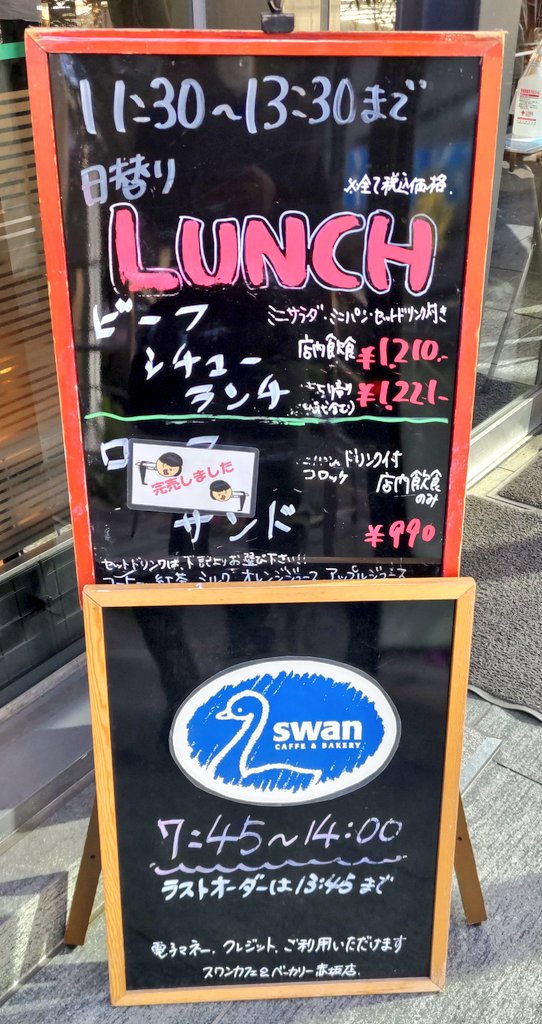 11:30～13:30まで
日替り
※全て税込価格.
LUNCH
ビーフ
シチュー
ランチ
ミニサラダ・ミニパン・セットドリンク付き
店内飲食 ¥1,210.-
¥1,221-
完売しました
サンド
ドリンク付
コロッケ
店内飲食
のみ
¥990
セットドリンクは、下記よりお選び下さい!!
コーヒー 紅茶 ミルク オレンジジュース アップルジュース
swan
CAFFE & BAKERY
7:45～14:00
ラストオーダーは13:45まで
電子マネー、クレジット、ご利用いただけます
スワンカフェ&ベーカリー赤坂店.